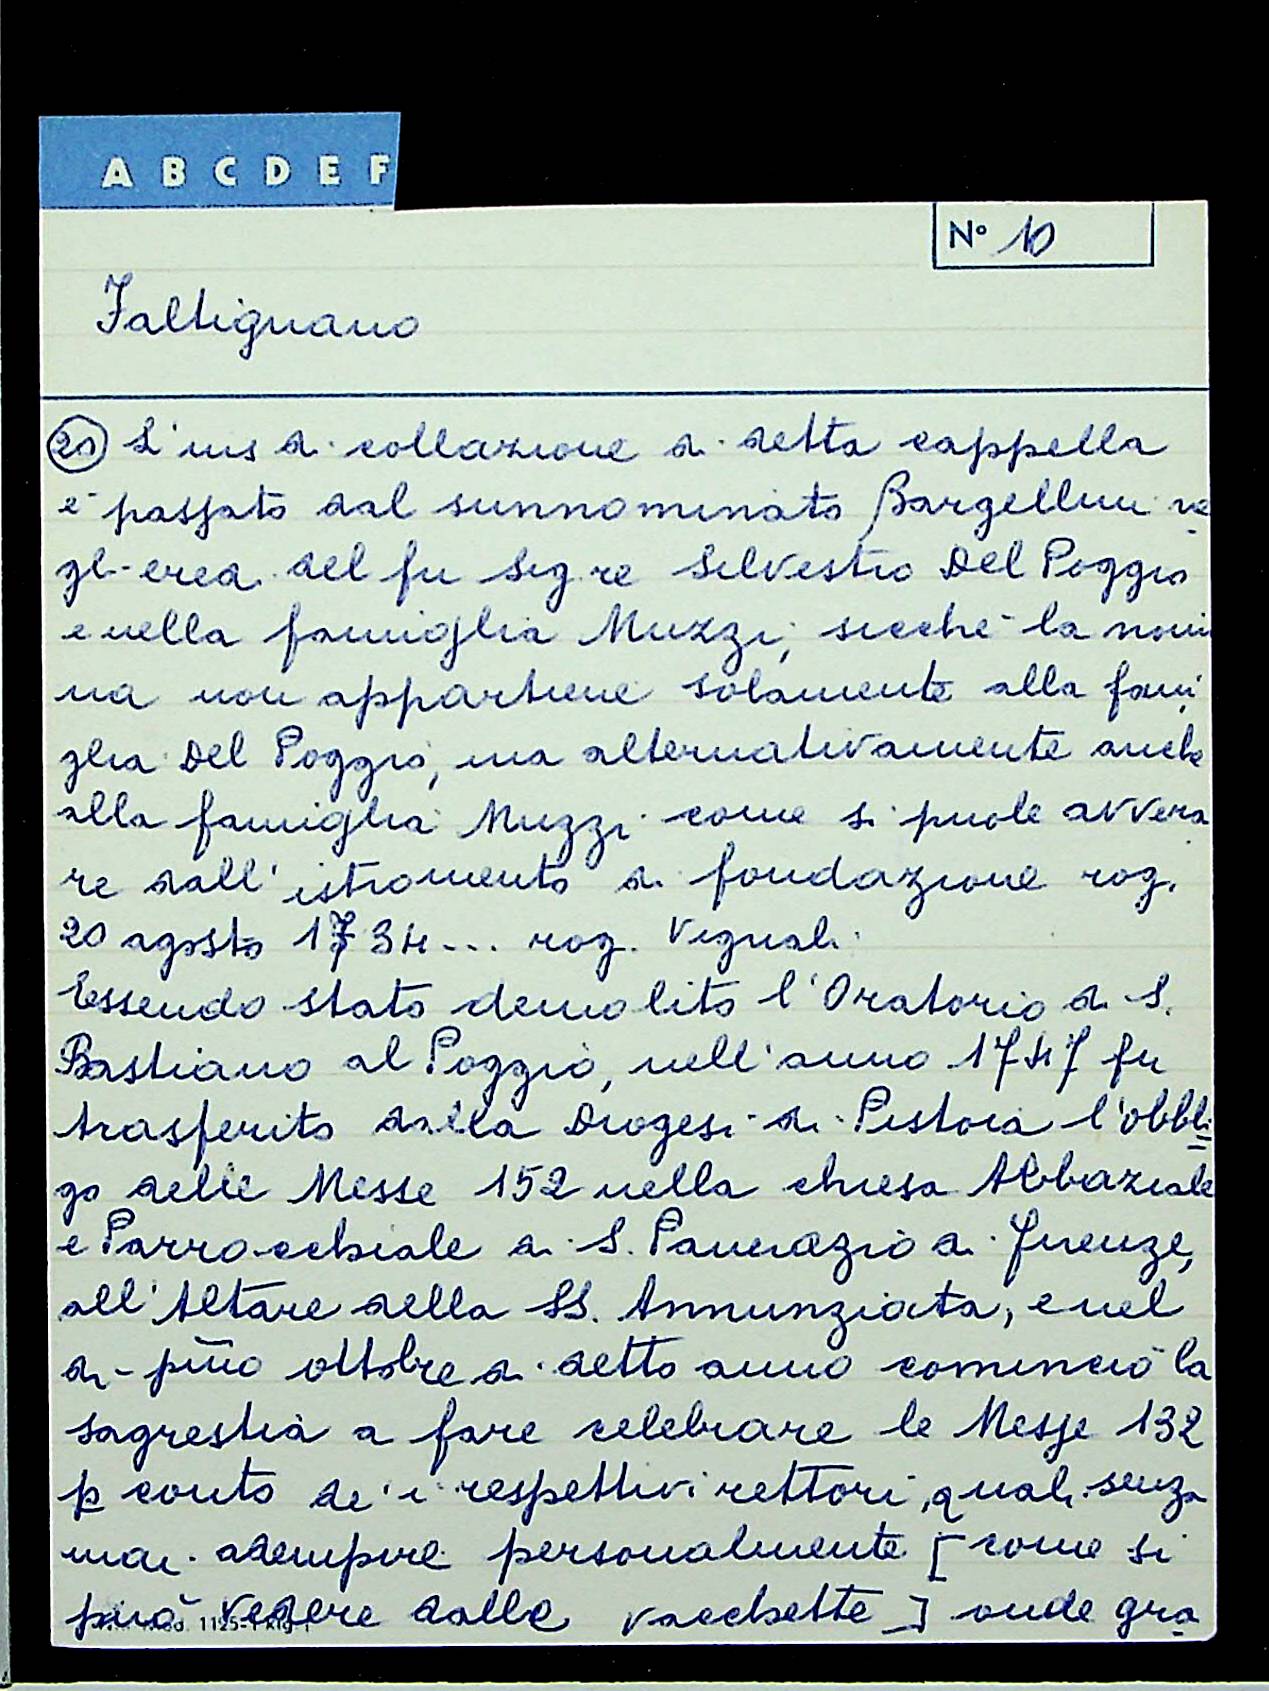 A B C D E F
N° 10
Faltignano
20 L'ius di collazione di detta cappella
è passato dal sunnominato Bargellini ne
gl-ered. del fu Sig re Silvestro Del Poggio
e nella famiglia Muzzi, sicchè la nomi
na non appartiene solamente alla fami
glia Del Poggio, ma alternativamente anche
alla famiglia Muzzi come si puole avvera
re dall'istromento di fondazione rog.
20 agosto 1734... rog. Vignali.
Essendo stato demolito l'Oratorio di S.
Bastiano al Poggio, nell'anno 1747 fu
trasferito dalla Diogesi di Pistoia l'obbli
go delle Messe 152 nella chiesa Abbaziale
e Parrocchiale di S. Pancrazio di Firenze,
all'Altare della SS. Annunziata, e nel
dì p̃mo ottobre di detto anno cominciò la
sagrestia a fare celebrare le Messe 132
p conto de' i respettivi rettori, quali senza
mai adempire personalmente [come si
può vedere dalle vacchette] onde gra
1125-1 Rig 1